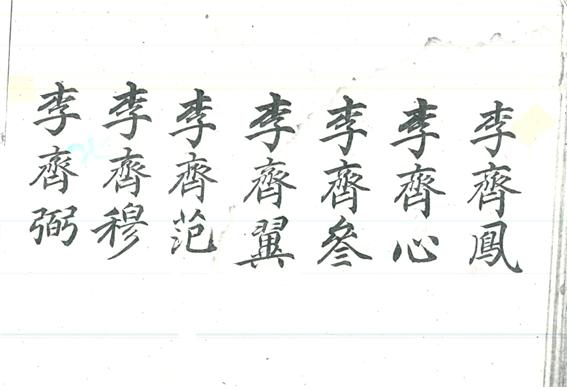 李齊鳳
李齊心
李齊叄
李齊翼
李齊范
李齊穆
李齊弼